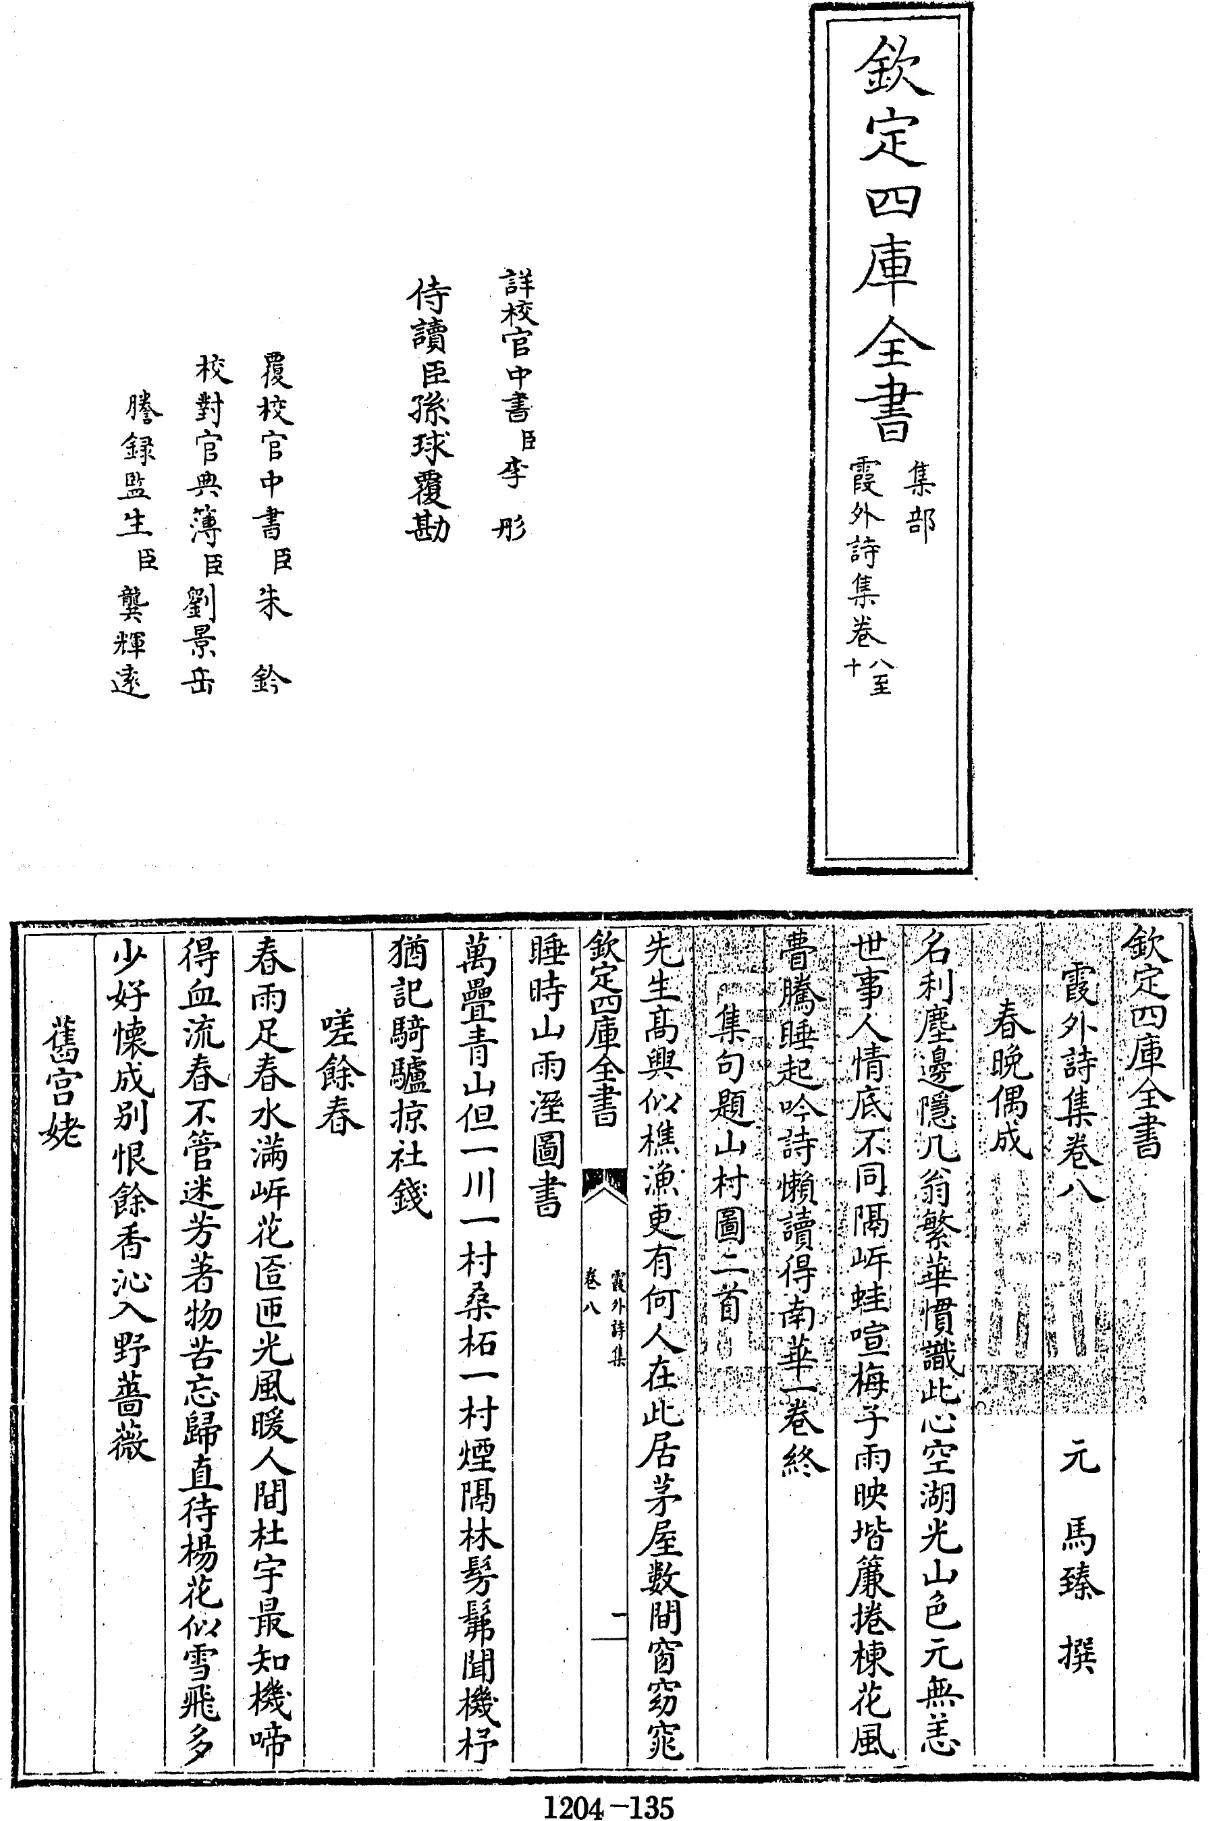 欽定四庫全書
集部
霞外詩集卷八至十
詳校官中書臣李彤
侍讀臣孫球覆勘
覆校官中書臣朱鈐
校對官典簿臣劉景岳
謄録監生臣龔輝遠
欽定四庫全書
霞外詩集卷八 元 馬臻 撰
春晚偶成
名利塵邊隱几翁繁華慣識此心空湖光山色元無恙
世事人情底不同隔岸蛙喧梅子雨映堦簾捲楝花風
瞢騰睡起吟詩懶讀得南華一卷終
集句題山村圖二首
先生髙興似樵漁更有何人在此居茅屋數間窗窈窕
欽定四庫全書 霞外詩集 卷八 一
睡時山雨溼圖書
萬疊青山但一川一村桑柘一村煙隔林髣髴聞機杼
猶記騎驢掠社錢
嗟餘春
春雨足春水滿岸花匼匝光風暖人間杜宇最知機啼
得血流春不管迷芳著物苦忘歸直待楊花似雪飛多
少好懷成别恨餘香沁入野薔薇
舊宫姥
1204-135